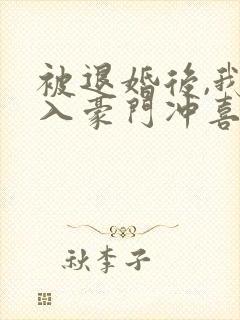 被退婚後,我
入豪門沖喜
秋李子